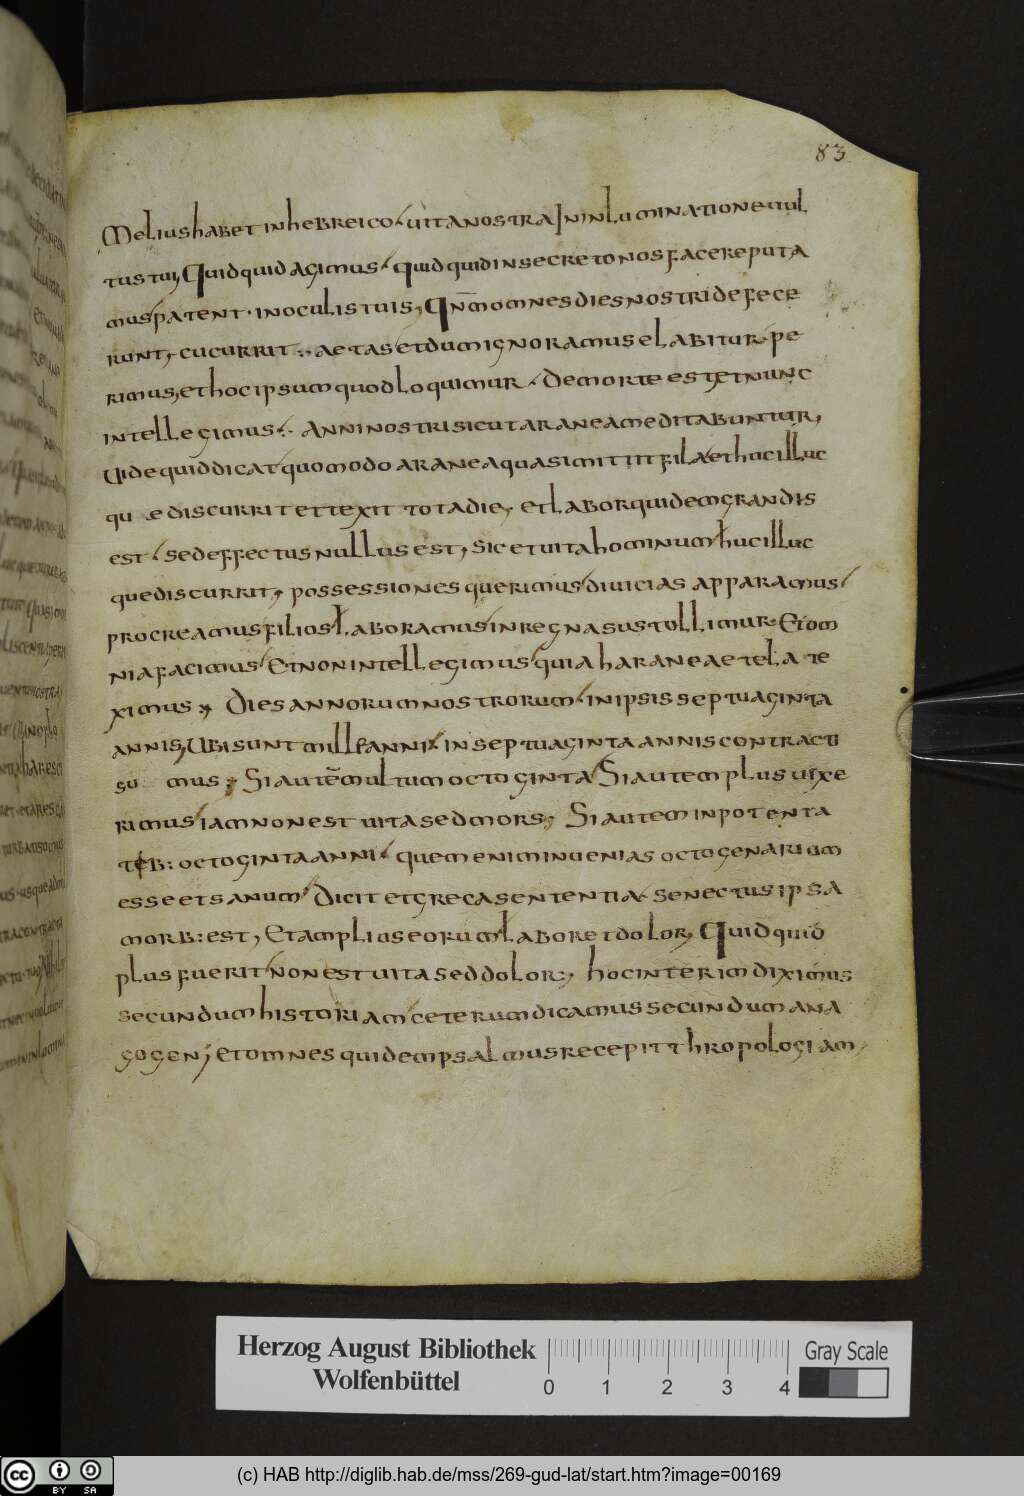 83
Melius habet in hebreico. uita nostra In inluminatione uul
tus tui, Quidquid agimus. quidquid in secreto nos facere puta
mus patent. in oculis tuis, Qnm omnes dies nostri defece
runt, cucurrit.. aetas et dum ignoramus elabitur. pe
rimus, et hoc ipsum quod loquimur. De morte est, et nunc
intellegimus.. Anni nostri sicut aranea meditabuntur,
Uide quid dicat quomodo aranea quasi mittit fila et huc illuc
qu e discurrit et texit tota die, et labor quidem grandis
est. sed effectus nullus est, sic et uita hominum huc illuc
que discurrit, possessiones querimus diuicias apparamus
procreamus filios laboramus in regna sustollimur. Et om
nia facimus Et non intellegimus quia haraneae tela te
ximus, Dies annorum nostrorum. in ipsis septuaginta
annis, Ubi sunt mille anni in septuaginta annis contracti
su mus, Si autem multum octoginta Si autem plus uixe
rimus iam non est uita sed mors, Si autem in potenta
tib: octoginta anni. quem enim inuenias octogenarium
esse et sanum Dicit et greca sententia. Senectus ipsa
morb: est, Et amplius eorum labor et dolor, Quidquid
plus fuerit non est uita sed dolor, hoc interim diximus
secundum historiam ceterum dicamus secundum ana
gogen, et omnes quidem psalmus recepit thropologiam,
Herzog August Bibliothek
Wolfenbüttel
0 1 2 3 4
Gray Scale
cc BY SA
(c) HAB http://diglib.hab.de/mss/269-gud-lat/start.htm?image=00169